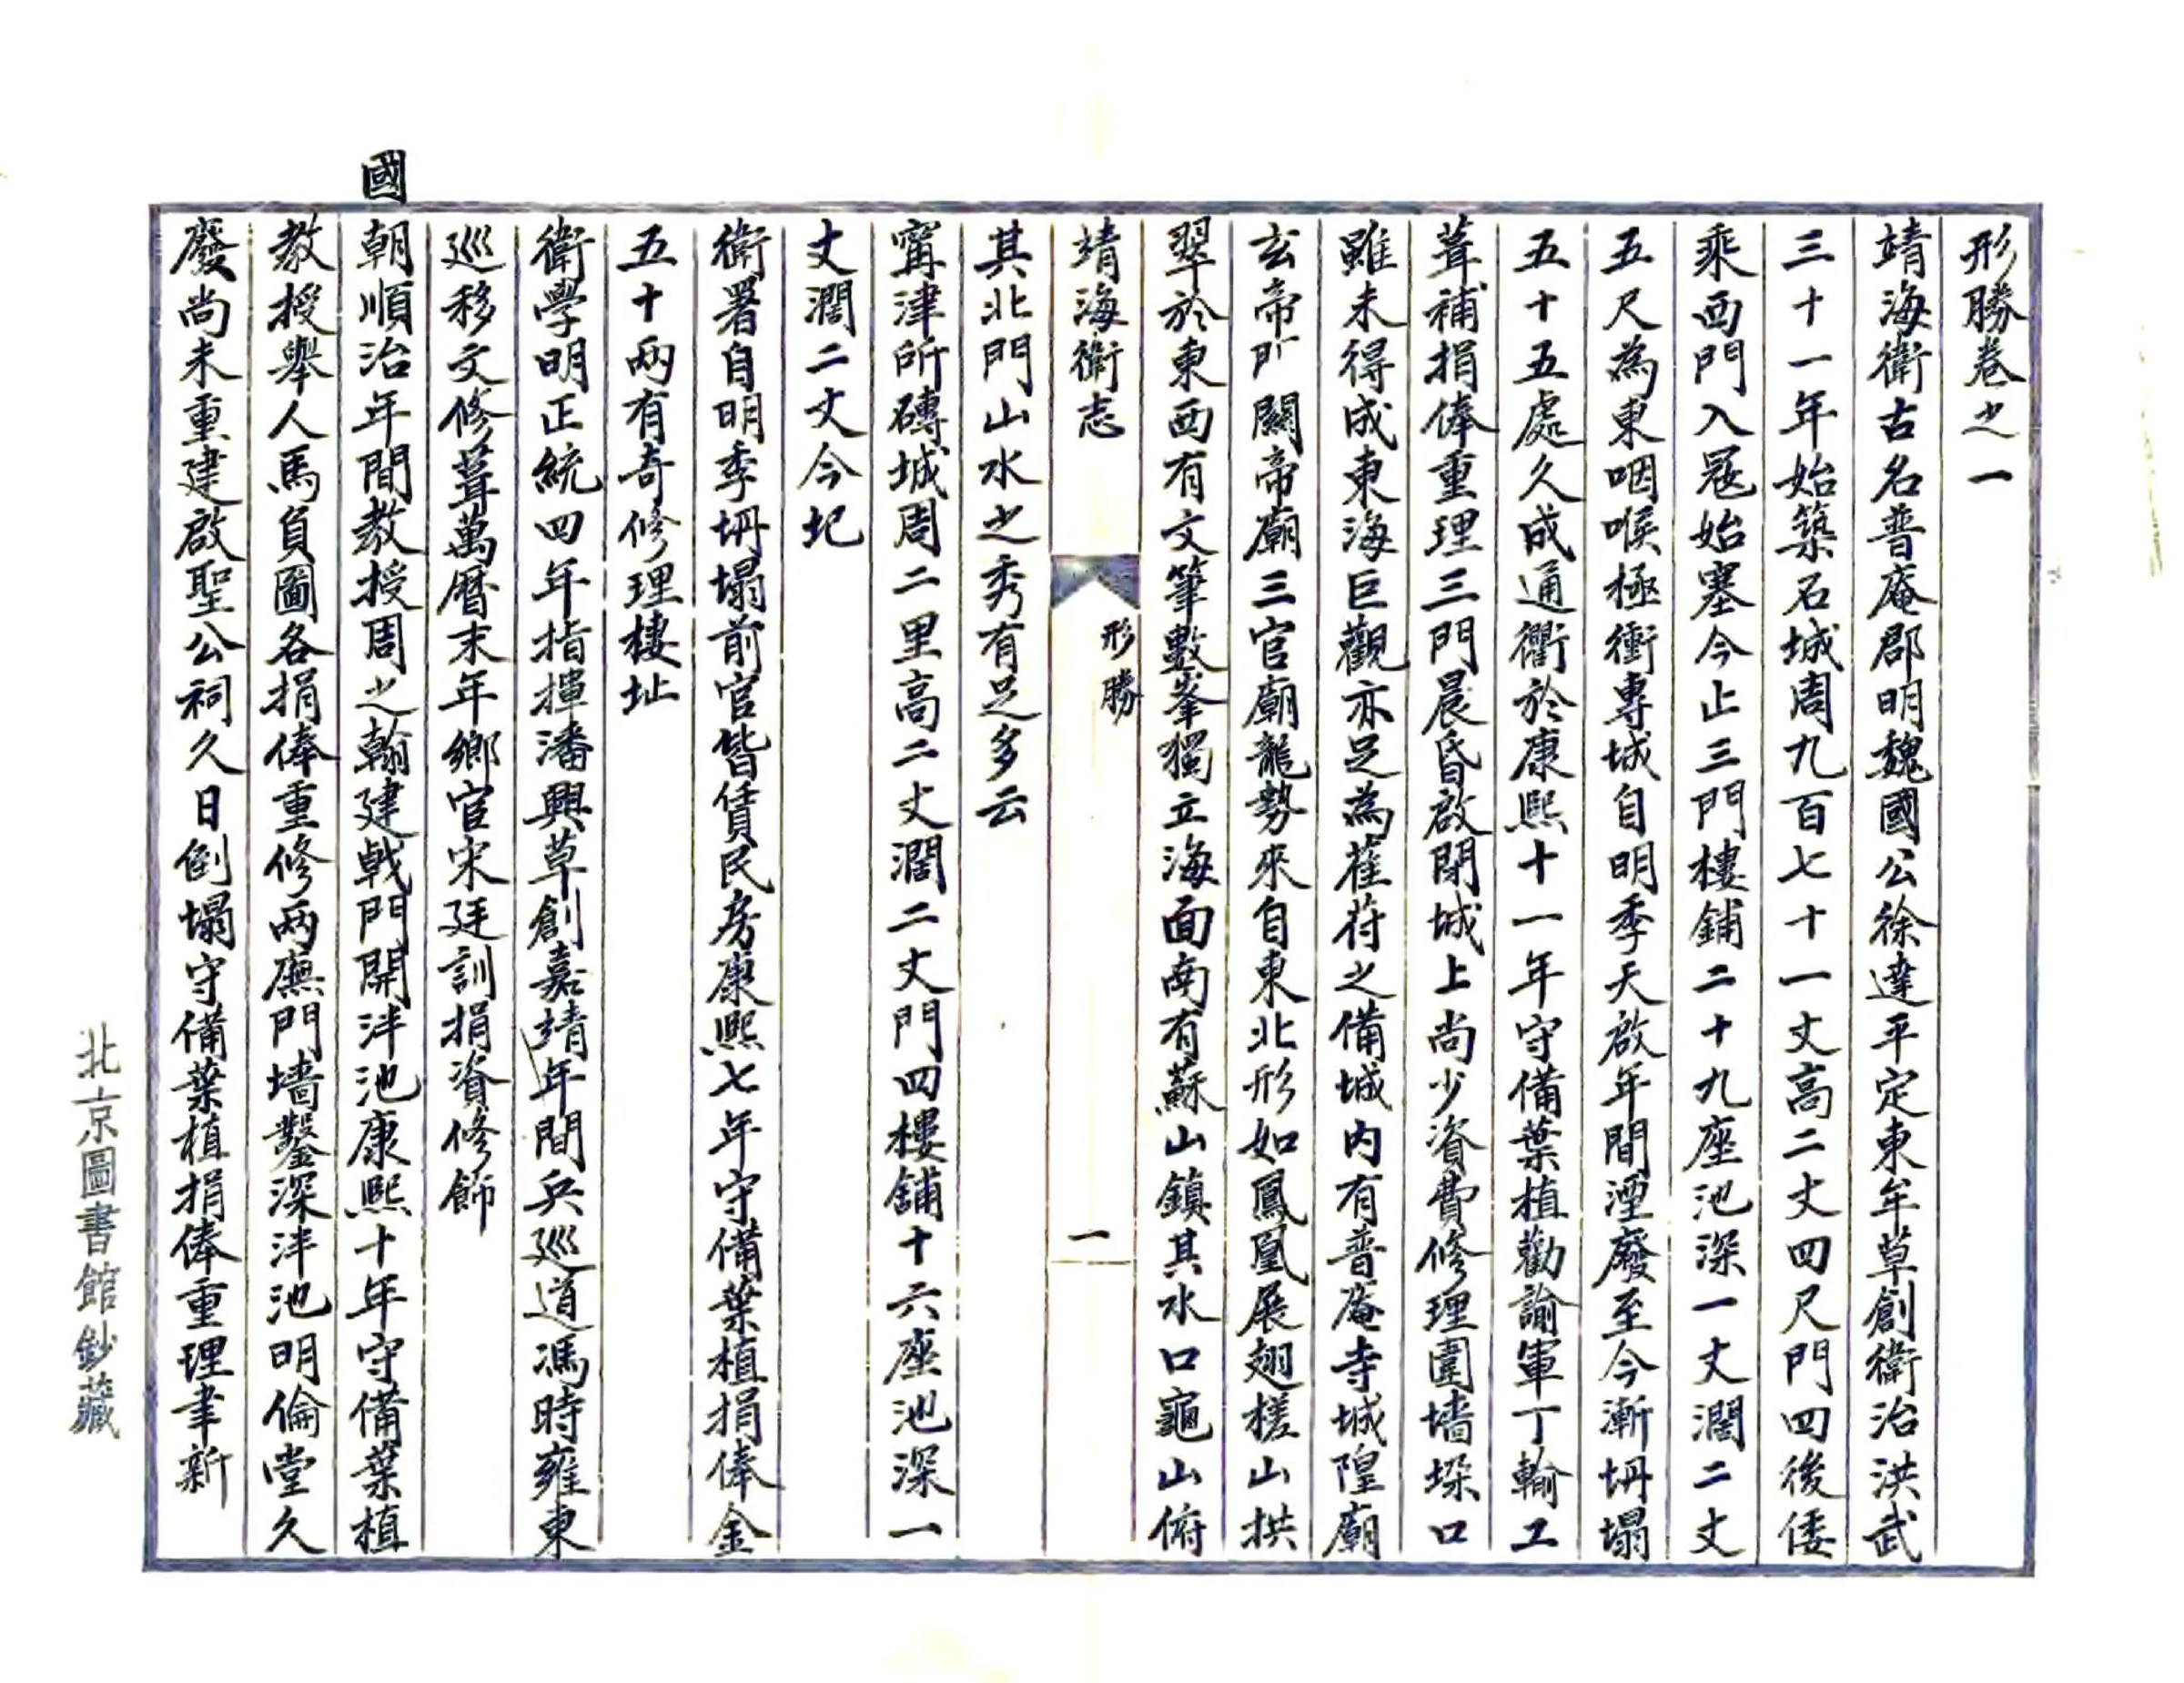 形勝卷之一
靖海衛古名普庵郡明魏國公徐達平定東牟草創衛治洪武
三十一年始築石城周九百七十一丈高二丈四尺門四後倭
乘西門入冦始塞今止三門樓鋪二十九座池深一丈濶二丈
五尺為東咽喉極衝專城自明季天啟年間湮廢至今漸坍塌
五十五處久成通衢於康熙十一年守備葉植勸諭軍丁輸工
葺補捐俸重理三門晨昏啟閉城上尚少資費修理圍墻垛口
雖未得成東海巨觀亦足為萑苻之備城内有普庵寺城隍廟
玄帝關帝廟三官廟龍勢來自東北形如鳳凰展翅槎山拱
翠於東西有文筆數峯獨立海面南有蘇山鎮其水口龜山俯
靖海衛志
形勝
一
其北門山水之秀有足多云
甯津所磚城周二里高二丈濶二丈門四樓鋪十六座池深一
丈濶二丈今圮
衛署自明季坍塌前官皆賃民房康熙七年守備葉植捐俸金
五十兩有奇修理樓址
衛學明正統四年指揮潘興草創嘉靖年間兵巡道馮時雍東
巡移文修葺萬曆末年鄉宦宋廷訓捐資修飾
國朝順治年間教授周之翰建戟門開泮池康熙十年守備葉植
教授舉人馬負圖各捐俸重修兩廡門墻鑿深泮池明倫堂久
廢尚未重建啟聖公祠久日倒塌守備葉植捐俸重理聿新
北京圖書館鈔藏